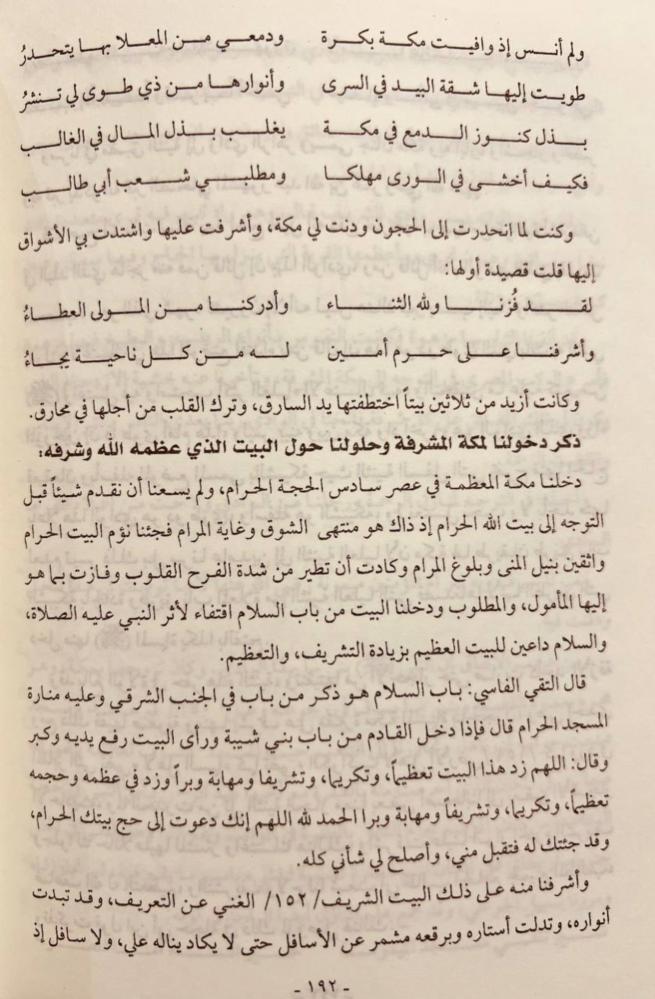 ولم أنس إذ وافيت مكة بكرة ودمعي من المعلا بها يتحدرُ
طويت إليها شقة البيد في السرى وأنوارها من ذي طوى لي تنشرُ
بذل كنوز الدمع في مكة يغلب بذل المال في الغالب
فكيف أخشى في الورى مهلكا ومطلبي شعب أبي طالب
وكنت لما انحدرت إلى الحجون ودنت لي مكة، وأشرفت عليها واشتدت بي الأشواق
إليها قلت قصيدة أولها:
لقد فُزنا ولله الثناء وأدركنا من المولى العطاءُ
وأشرفنا على حرم أمين له من كل ناحية يجاءُ
وكانت أزيد من ثلاثين بيتاً اختطفتها يد السارق، وترك القلب من أجلها في محارق.
ذكر دخولنا لمكة المشرفة وحلولنا حول البيت الذي عظمه الله وشرفه:
دخلنا مكة المعظمة في عصر سادس الحجة الحرام، ولم يسعنا أن نقدم شيئاً قبل
التوجه إلى بيت الله الحرام إذ ذاك هو منتهى الشوق وغاية المرام فجئنا نؤم البيت الحرام
واثقين بنيل المنى وبلوغ المرام وكادت أن تطير من شدة الفرح القلوب وفازت بما هو
إليها المأمول، والمطلوب ودخلنا البيت من باب السلام اقتفاء لأثر النبي عليه الصلاة،
والسلام داعين للبيت العظيم بزيادة التشريف، والتعظيم.
قال التقي الفاسي: باب السلام هو ذكر من باب في الجنب الشرقي وعليه منارة
المسجد الحرام قال فإذا دخل القادم من باب بني شيبة ورأى البيت رفع يديه وكبر
وقال: اللهم زد هذا البيت تعظيماً، وتكريما، وتشريفا ومهابة وبراً وزد في عظمه وحجمه
تعظيماً، وتكريما، وتشريفاً ومهابة وبرا الحمد لله اللهم إنك دعوت إلى حج بيتك الحرام،
وقد جئتك له فتقبل مني، وأصلح لي شأني كله.
وأشرفنا منه على ذلك البيت الشريف/ ١٥٢/ الغني عن التعريف، وقد تبدت
أنواره، وتدلت أستاره وبرقعه مشمر عن الأسافل حتى لا يكاد يناله علي، ولا سافل إذ
- ١٩٢ -